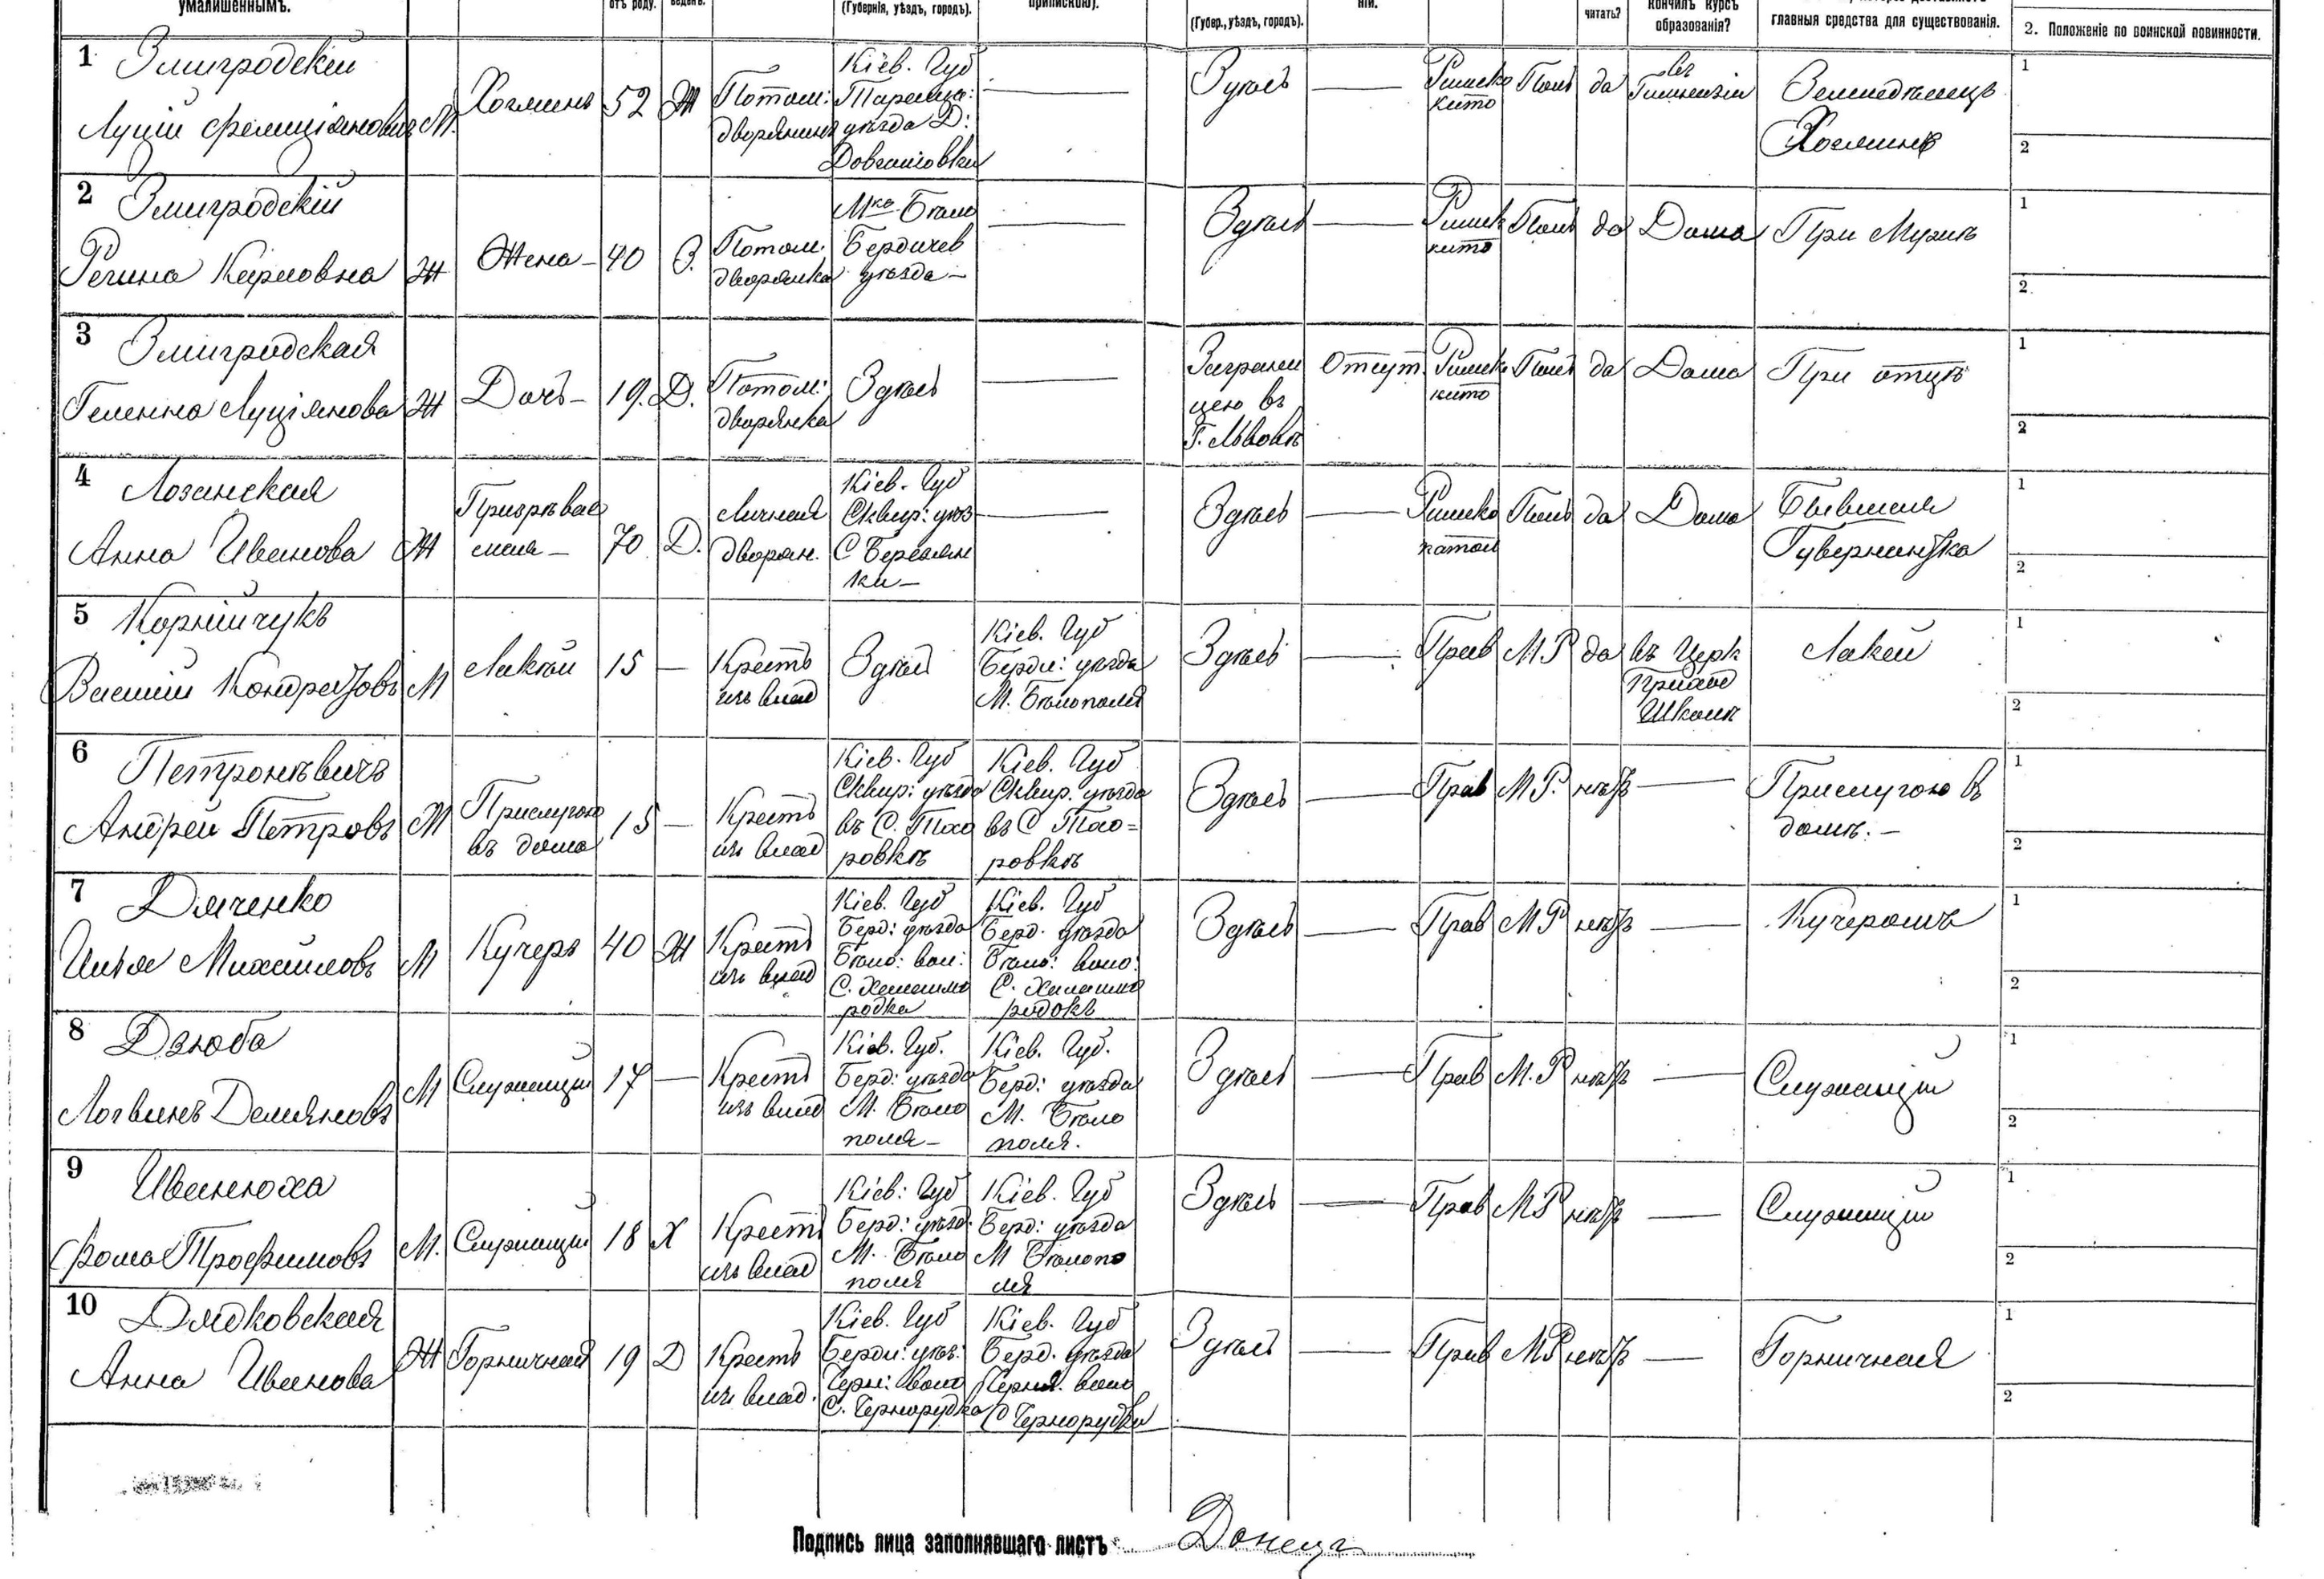 умалишеннымъ.
отъ роду.
(Губернія, уѣздъ, городъ).
припискою).
(Губер., уѣздъ, городъ).
читать?
кончилъ курсъ
образованія?
главныя средства для существованія.
2. Положеніе по воинской повинности.
1 Змигродскій
Луцій Фелиціяновичъ М. Хозяинъ 52 Ж
Потом: дворянинъ
Кіев. Губ
Таращ:
уѣзда Д:
Довгалювки
Здѣсь
Римско като
Пол да
въ Гимназіи
Земледѣлецъ
Хозяинъ
1
2
2 Змигродскій
Регина Карловна Ж Жена 40 З.
Потом: дворянка
Мко Бѣло
Бердичев
уѣзда
Здѣсь
Римск като
Пол да Дома При Мужѣ
1
2
3 Змигродская
Геленна Луціянова Ж Дочь 19. Д.
Потом: дворянка
Здѣсь
Заграни
цею въ
Г. Львовѣ
Отсут
Римск като
Пол да Дома При отцѣ
1
2
4 Лозинская
Анна Иванова Ж
Призрѣвае
мая
70 Д.
Личная
дворян.
Кіев. Губ
Сквир: уѣз
С Березян
ки
Здѣсь
Римско
катол
Пол да Дома
Бывшая
Гувернантка
1
2
5 Корнійчукъ
Василій Кондратовъ М Лакей 15
Крест
изъ влад
Здѣсь
Кіев. Губ
Берди: уѣзда
М. Бѣлополя
Здѣсь
Прав М Р да
въ Церк
Приход
Школѣ
Лакей
1
2
6 Петроневичъ
Андрей Петровъ М
Прислугою
въ дома
15
Крест
изъ влад
Кіев. Губ
Сквир: уѣзда
въ С. Тхо
ровкѣ
Кіев. Губ
Сквир. уѣзда
въ С Тхо=
ровкѣ
Здѣсь
Прав М Р. нѣтъ
Прислугою въ
домѣ.
1
2
7 Дяченко
Илья Михайловъ М Кучеръ 40 Ж
Крест
изъ влад
Кіев. Губ
Берд: уѣзда
Бѣло: вол:
С. Халаимго
родка
Кіев. Губ
Берд. уѣзда
Бѣло: воло:
С. Халаимго
родокъ
Здѣсь
Прав М Р нѣтъ
Кучеромъ
1
2
8 Дзюба
Логвинъ Демяновъ М Служащій 17
Крест
изъ влад
Кіев. Губ.
Берд: уѣзда
М. Бѣло
поля
Кіев. Губ.
Берд: уѣзда
М. Бѣло
поля.
Здѣсь
Прав М. Р нѣтъ
Служащій
1
2
9 Иванюха
Фома Трофимовъ М. Служащій 18 Х
Крест
изъ влад
Кіев: Губ
Берд: уѣзд.
М. Бѣло
поля
Кіев. Губ
Берд: уѣзда
М Бѣлопо
ля
Здѣсь
Прав М Р нѣтъ
Служащій
1
2
10 Дядковская
Анна Иванова Ж Горничная 19 Д
Крест
изъ влад.
Кіев. Губ
Берди: уѣз:
Черн: воло
С. Чернорудка
Кіев. Губ
Берд. уѣзда
Черня. воло
С Чернорудки
Здѣсь
Прав М Р нѣтъ
Горничная
1
2
Подпись лица заполнявшаго листъ: Донец